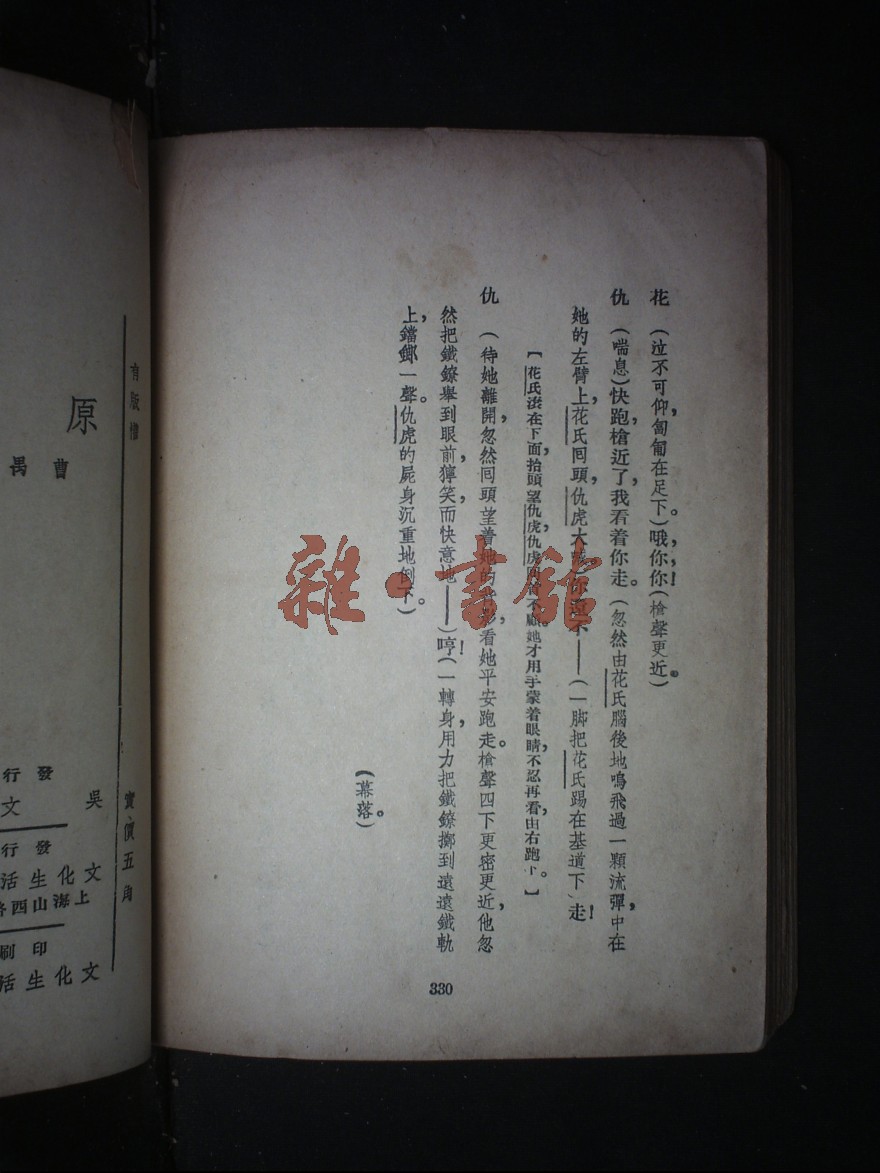 花　(泣不可仰，匍匐在足下。)哦，你，你！(槍聲更近。)
仇　(喘息)快跑，槍近了，我看着你走。(忽然由花氏腦後地鳴飛過一顆流彈，中在
她的左臂上，花氏囘頭，仇虎大
不——(一脚把花氏踢在基道下，)走！
【花氏滾在下面，抬頭望仇虎，仇虎
不顧，她才用手蒙着眼睛，不忍再看，由右跑下。】
仇　(待她離開，忽然囘頭望着她的
影，看她平安跑走。槍聲四下更密更近，他忽
然把鐵鐐舉到眼前，獰笑而快意地——)哼！(一轉身，用力把鐵鐐擲到遠遠鐵軌
上，鐺鎯一聲。仇虎的屍身沉重地倒下。)
(幕落。)
330
雜·書館
有版權
原
曹禺
實價五角
發行
吳文
發行
文化生活
上海山西路
印刷
文化生活